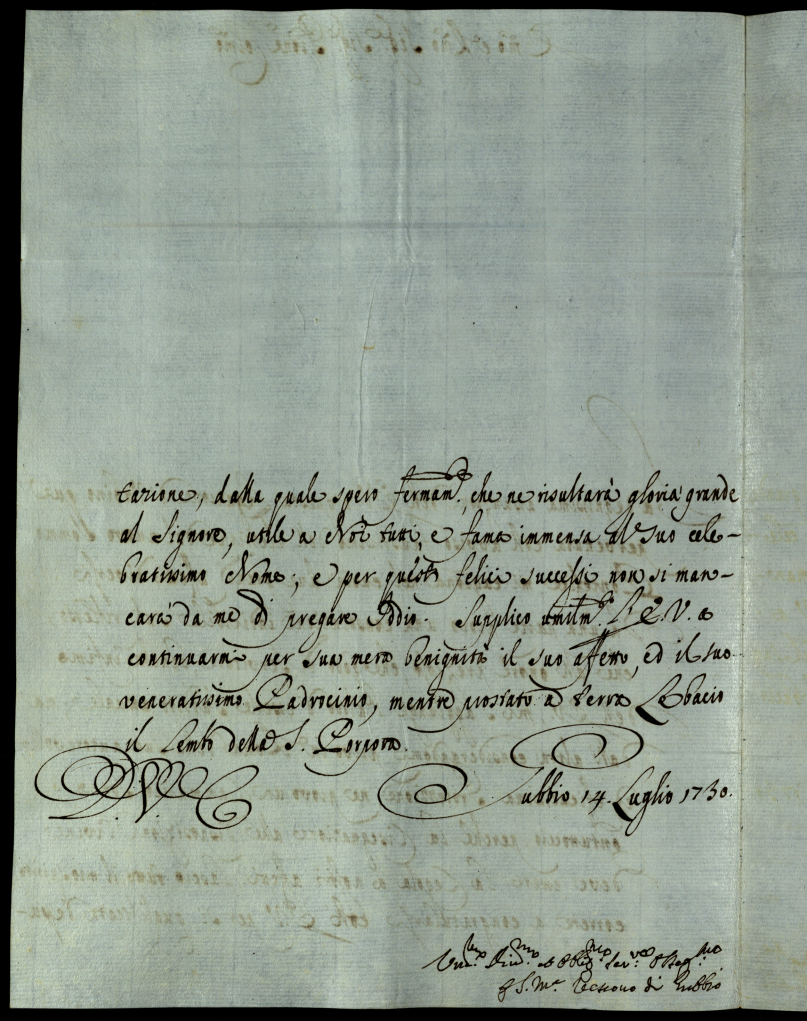 tazione, dalla quale spero fermam.e, che ne risultarà gloria grande
al Signore, utile a Noi tutti, e fama immensa al suo cele-
bratissimo Nome; e per questi felici successi non si man-
carà da me di pregare Iddio. Supplico umilm.e l'E.V. a
continuarmi per sua mera benignità il suo affetto, ed il suo
veneratissimo Padrocinio, mentre prostrato a terra Le bacio
il Lembo della S. Porpora.
D. V. E.
Gubbio 14. Luglio 1730.
Um.mo Div.mo et Obblig.mo Ser.re Osseq.mo
S. M. Vescovo di Gubbio